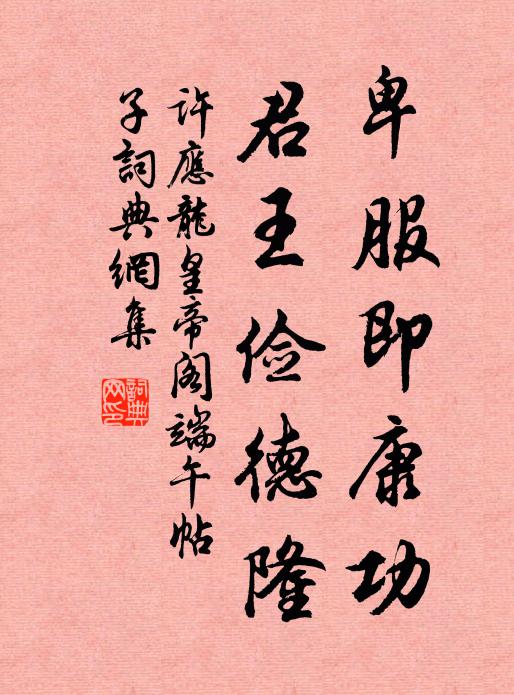 卑服即康功
君王俭德隆
许应龙皇帝阁端午帖
子词典网集
词典网印